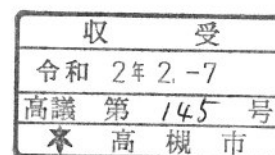 収 受
令和 2年 2.-7
高議 第 145 号
高槻市